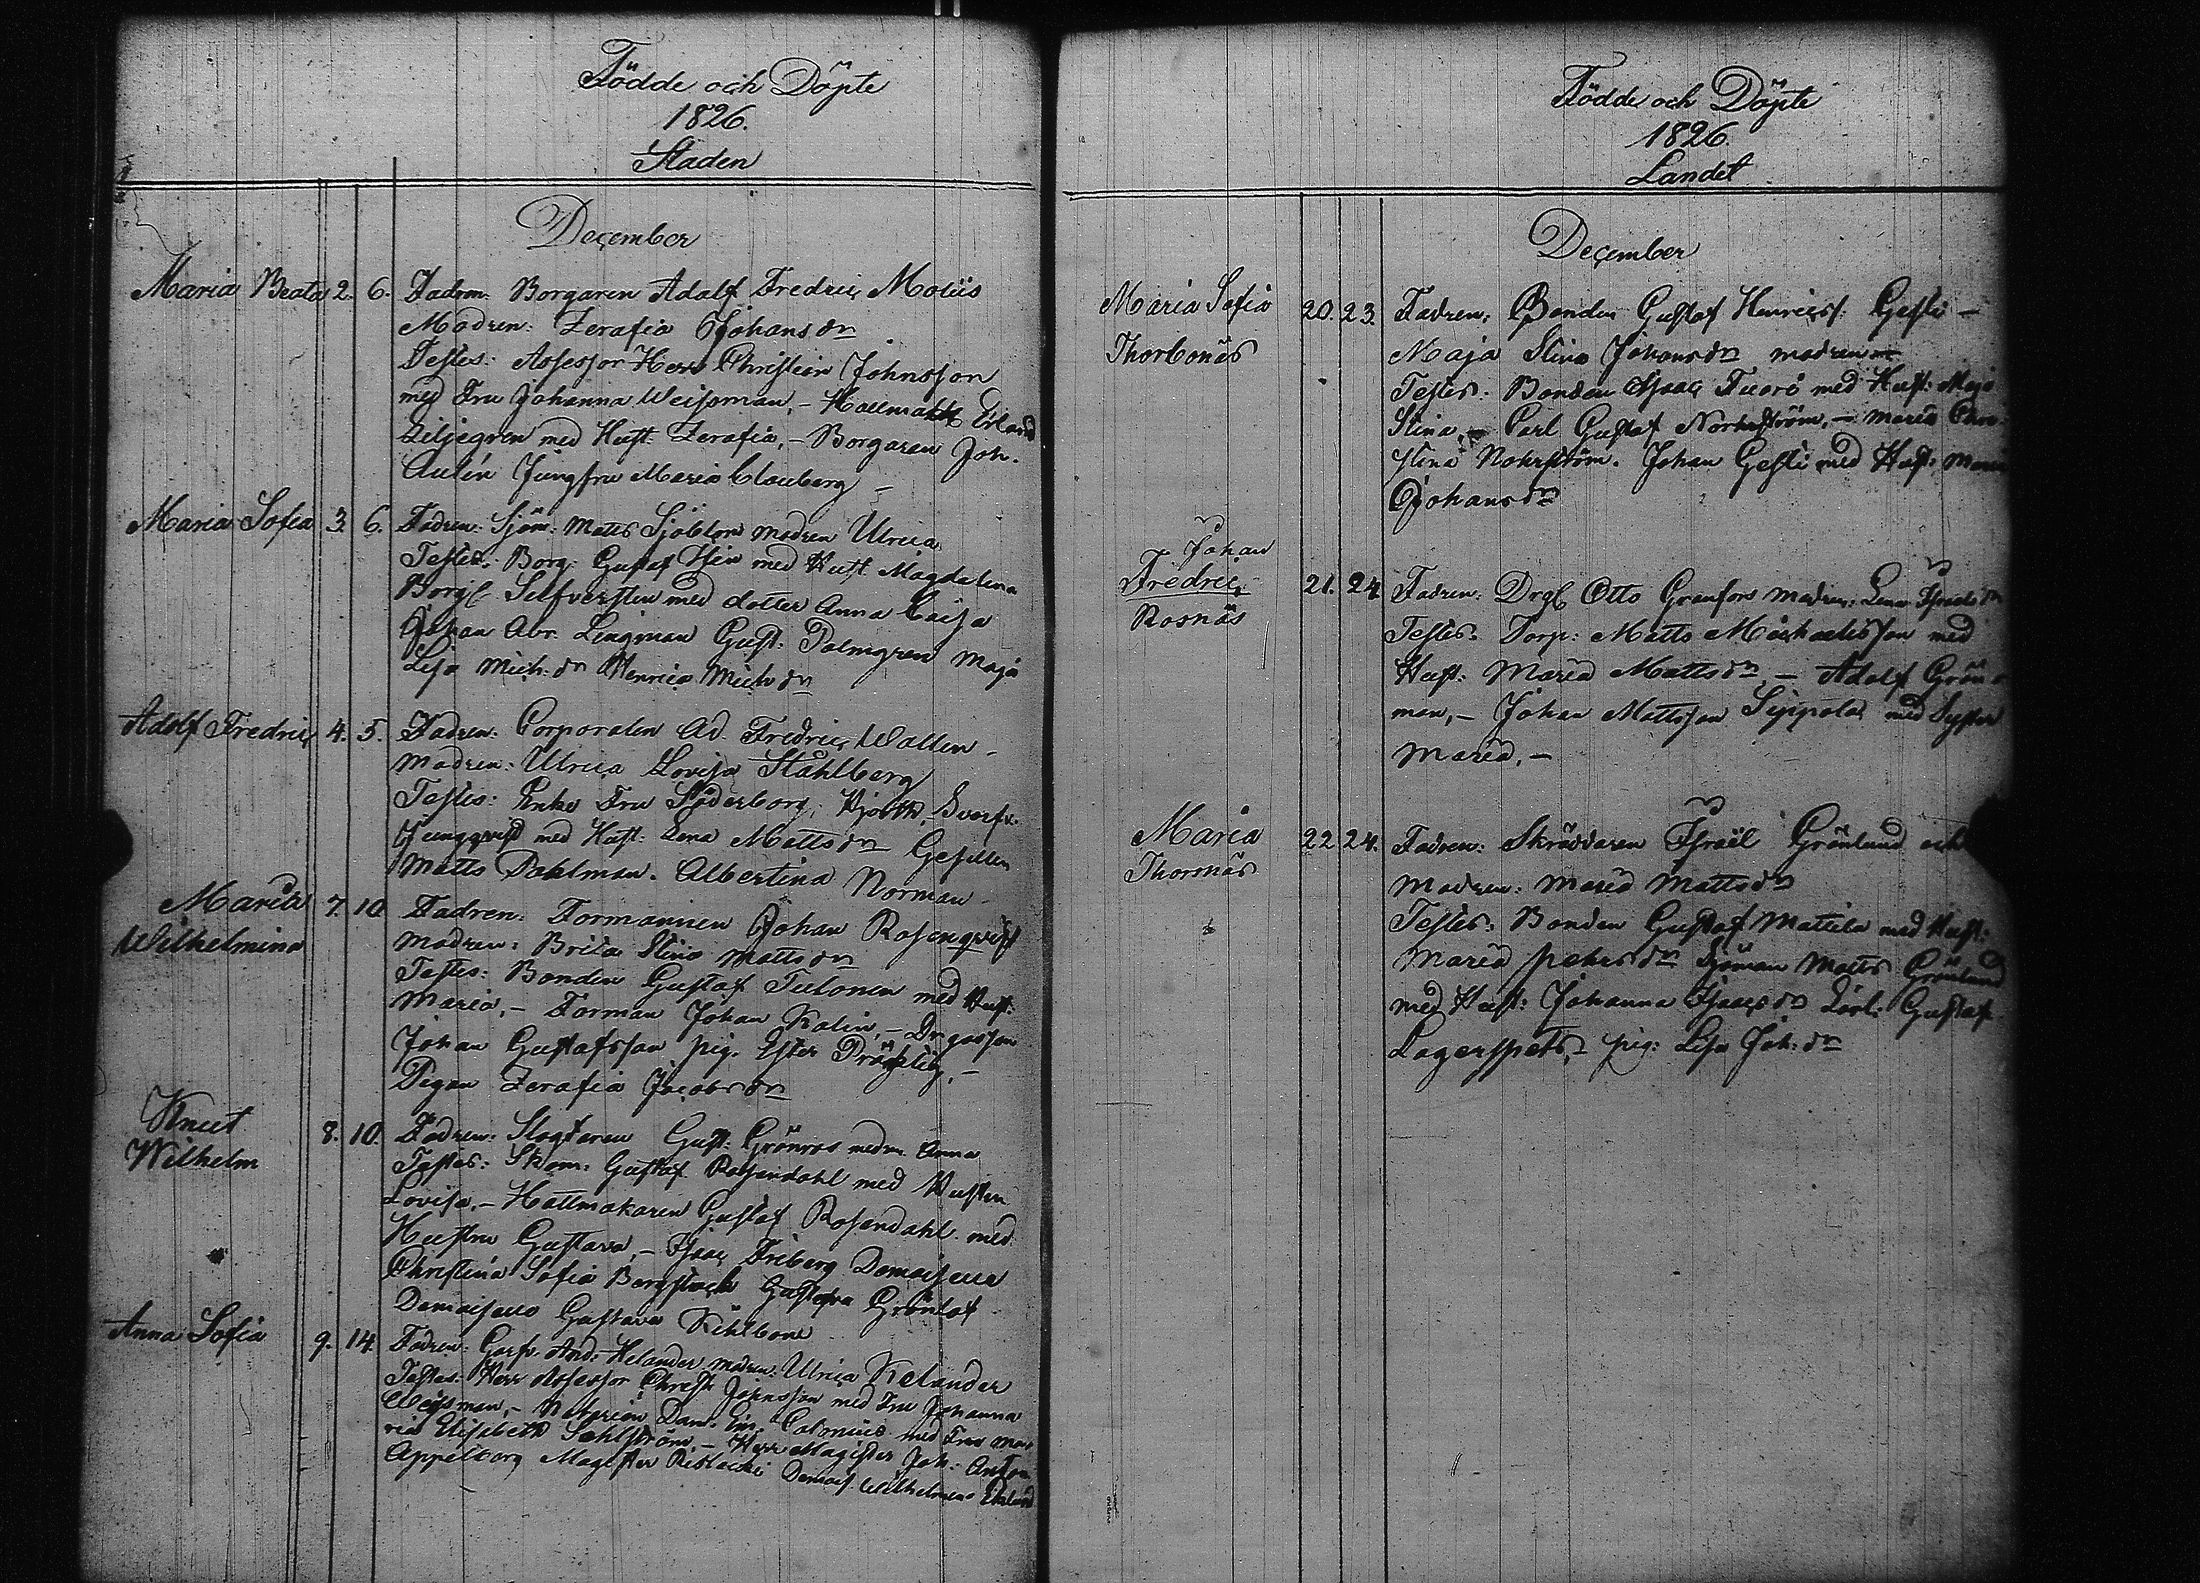 Födde och Döpte
1826.
Staden
December
Maria Beata 2. 6. Fadren: Borgaren Adolf Fredric Moliis
Modren: Serafia Johansdr
Testes: Assessor Herr Christian Johnsson
med Fru Johanna Weisman, - Erland
Liljegren med Hust. Serafia, - Borgaren Joh.
Aulin Jungfru Maria Clouberg -
Maria Sofia 3. 6. Fadren: Sjöm: Matts Sjöblom modren Ulrica
Testes: Borg: Gustaf med Hust Magdalena
Borg: Silfversten med dotter Anna Caisa
Johan Abr. Lingman Gust: Palmgren Maja
Lisa Mich.dr Henrica Mich dr
Adolf Fredric 4. 5. Fadren: Corporalen Ad. Fredric Wallen -
modren: Ulrica Lovisa Ståhlberg
Testes: Enke Fru Söderborg, Hjorth, Svarfv.
Ljungqvist med Hust: Lena Mattsdr Gesällen
Matts Dahlman. Albertina Norman -
Maria 7. 10 Fadren: Formannen Johan Rosenqvist
Wilhelmina modren: Brita Stina Mattsdr
Testes: Bonden Gustaf Tulonen med Hust:
Maria, - Forman Johan Kalin, - Drgossen
Johan Gustafsson pig. Ester -
Pigan Serafia Jacobsdr
Knut 8. 10. Fadren: Slagtaren Gust: Grönros modr. Anna
Wilhelm Testes: Skom: Gustaf Rosendahl med Hustru
Lovisa, - Hattmakaren Gustaf Rosendahl med
Hustru Gustava, - Isaac Friberg Demoiselle
Christina Sofia Gustafva Grönlof
Demoiselle Gustava
Anna Sofia 9. 14. Fadren: Garfv. And: Helander modren: Ulrica Helander
Testes: Herr Assessor Christ: Johnsson med Fru Johanna
Weisman, - Notarien Dan. Calonius med Fru Ma-
ria Elisabeth Sahlström, - Herr Magister Joh. Anton
Appelborg Magister Demois. Wilhelmina Eklund
Födde och Döpte
1826.
Landet
December
Maria Sofia 20. 23. Fadren: Bonden Gustaf Henricss: Gesti -
Thorlonäs Maja Stina Johansdr modren
Testes: Bonden Isaac Tuori med Hust: Maja
Stina, - Carl Gustaf Norrström, - Maria Chri-
stina Nohrström. Johan Gesti med Hust: Maria
Johansdr
Johan
Fredric 21. 24. Fadren: Drg: Otto Granfors modren: Lena
Rosnäs Testes: Torp: Matts Michaelsson med
Hust: Maria Mattsdr, - Adolf Grön-
man, - Johan Mattsson Sippola med Syster
Maria, -
Maria 22 24. Fadren: Skräddaren Israël Grönlund och
Thornäs Modren: Maria Mattsdr
Testes: Bonden Gustaf Mattila med Hust:
Maria Pehrsdr Sjöman Matts Grönlund
med Hust: Johanna Isaacsdr Gustaf
Lagerspets, - pig: Lisa Joh: dr